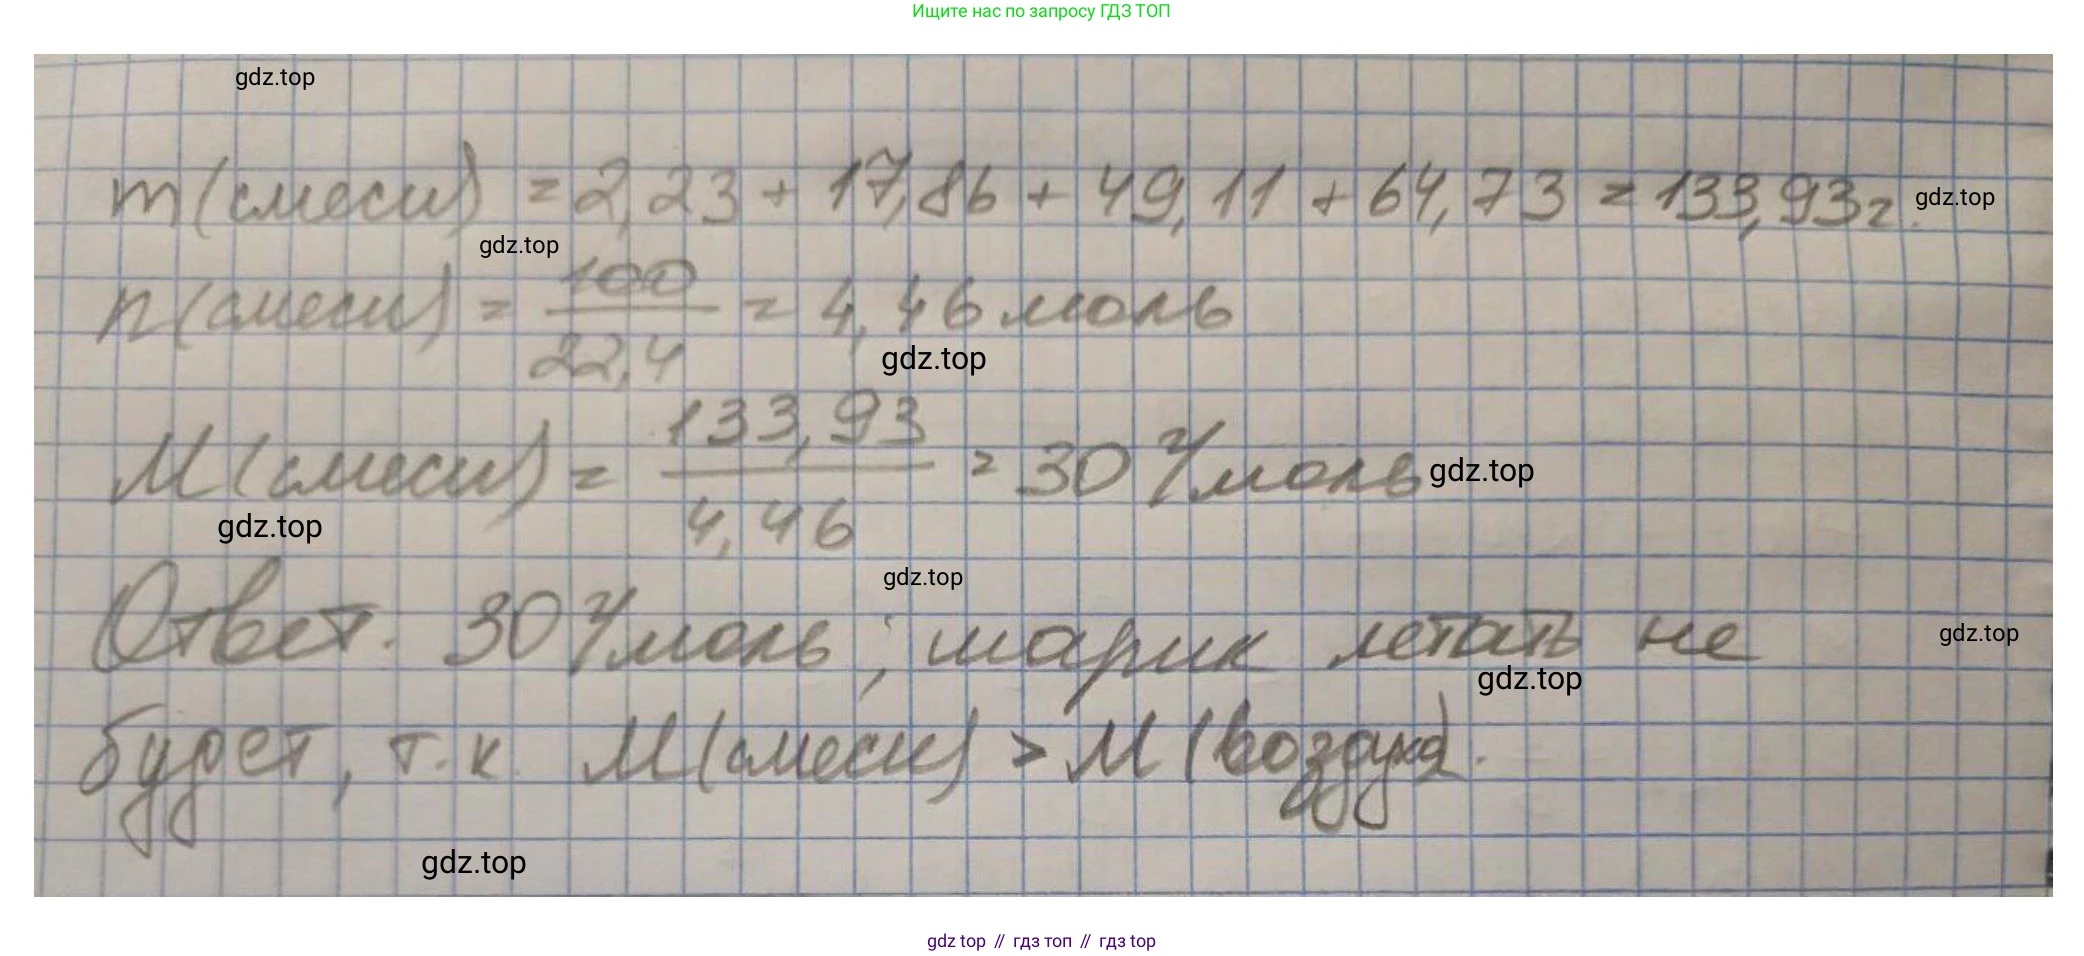 Ищите нас по запросу ГДЗ ТОП
gdz.top
m(смеси) = 2,23 + 17,86 + 49,11 + 64,73 = 133,93г.
gdz.top
gdz.top
n(смеси) = 100/22,4 = 4,46 моль
gdz.top
M(смеси) = 133,93/4,46 = 30 г/моль
gdz.top
gdz.top
gdz.top
Ответ. 30 г/моль; шарик летать не
gdz.top
gdz.top
будет, т.к. M(смеси) > M(воздуха).
gdz.top
gdz top // гдз топ // гдз top